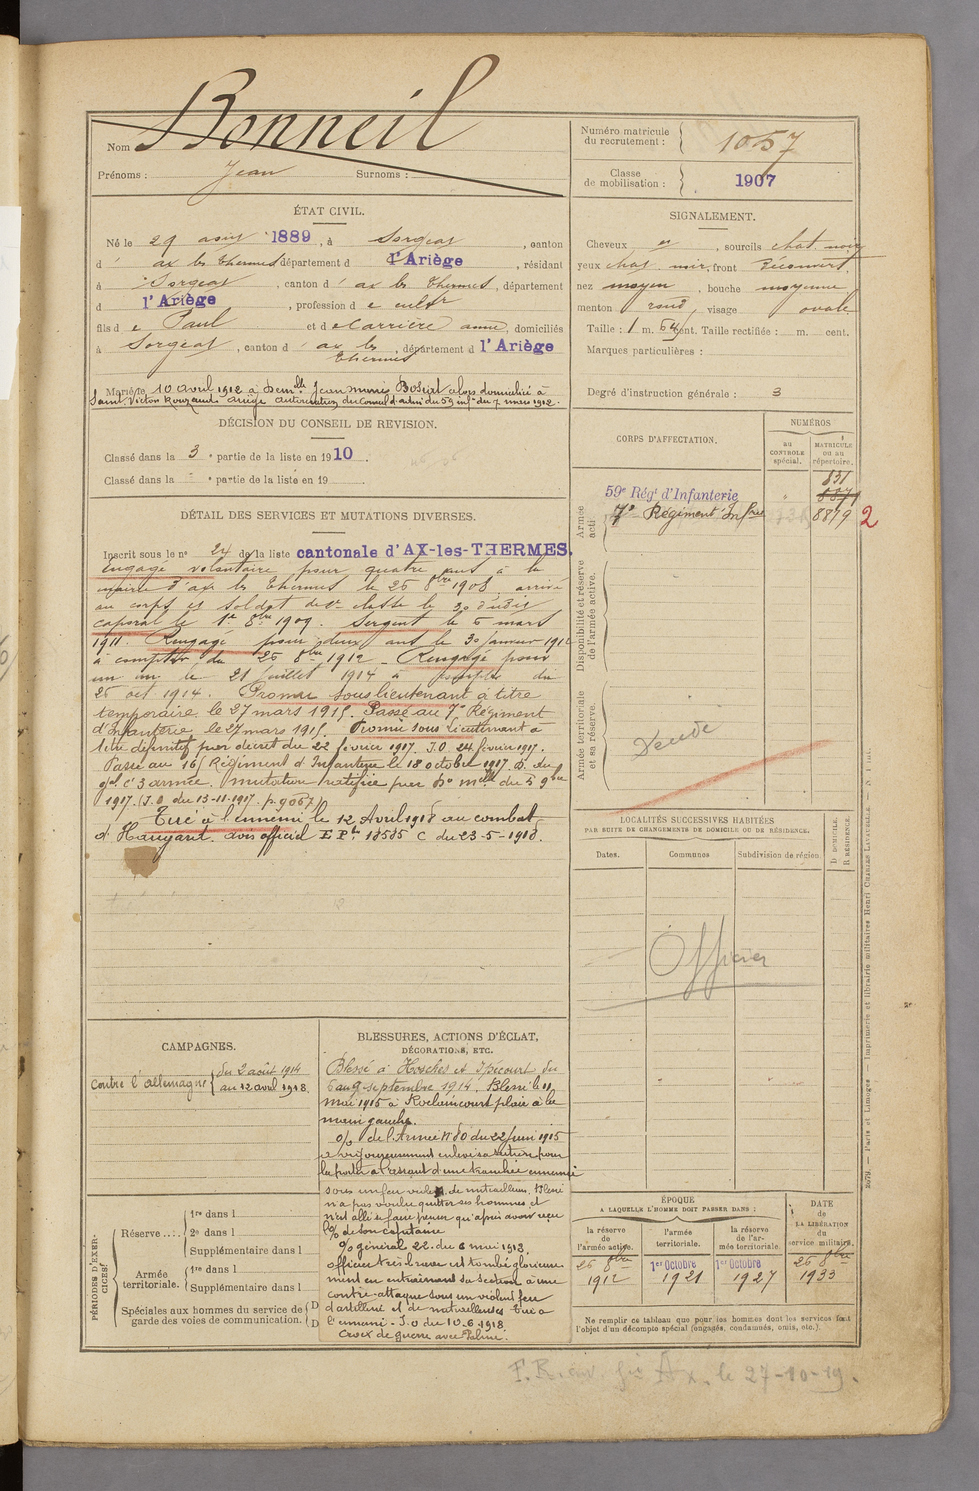 Nom Bonneil
Prénoms : Jean Surnoms :
Numéro matricule du recrutement : 1057
Classe de mobilisation : 1907
ÉTAT CIVIL.
Né le 29 août 1889, à Sorgeat, canton
d' ax les Thermes département d l'Ariège, résidant
à Sorgeat, canton d' ax les Thermes, département
d l'Ariège, profession d e cultr
fils d e Paul et d e Carrière anne, domiciliés
à Sorgeat, canton d' ax les Thermes, département d l'Ariège
Marié le 10 avril 1912 à Demlle Jeanne Marie alors domiciliée à
Saint Victor Rouzaud Ariège autorisation du Conseil d'admon du 59 infie du 7 mars 1912.
SIGNALEMENT.
Cheveux et, sourcils chat. noir
yeux chat. noir, front découvert,
nez moyen, bouche moyenne,
menton rond, visage ovale
Taille : 1 m. 64 cent. Taille rectifiée : m. cent.
Marques particulières :
Degré d'instruction générale : 3
DÉCISION DU CONSEIL DE REVISION.
Classé dans la 3e partie de la liste en 1910.
Classé dans la e partie de la liste en 19
CORPS D'AFFECTATION.
NUMÉROS
au CONTROLE spécial.
MATRICULE ou au répertoire.
Armée acti
59e Régt d'Infanterie " 831
5871
7e Régiment Infrie 8879 2
Disponibilité et réserve de l'armée active.
Armée territoriale et sa réserve.
DÉTAIL DES SERVICES ET MUTATIONS DIVERSES.
Inscrit sous le no 24 de la liste cantonale d'AX-les-THERMES.
Engagé volontaire pour quatre ans à la
mairie d'ax les Thermes le 26 8bre 1908 arrivé
au corps et soldat de 2e classe le 30 dudit
caporal le 1er 8bre 1909. Sergent le 6 mars
1911 Rengagé pour deux ans le 30 janvier 1912
à compter du 26 8bre 1912 - Rengagé pour
un an le 21 juillet 1914 à compter du
26 oct 1914. Promu sous lieutenant à titre
temporaire le 27 mars 1915. Passé au 7e Régiment
d'Infanterie le 27 mars 1915. Promu sous Lieutenant à
titre définitif par décret du 22 février 1917. J.O. 24 février 1917.
Passé au 16e Régiment d'Infanterie le 18 octobre 1917. D. du
gal Ct 3 armée. Mutation ratifiée par Don mlle du 5 9bre
1917. (J.O du 13-11-1917. p. 9067)
Tué à l'ennemi le 12 Avril 1918 au combat
d'Hangard. avis officiel E Pt. 18535 C du 23-5-1918.
LOCALITÉS SUCCESSIVES HABITÉES
PAR SUITE DE CHANGEMENTS DE DOMICILE OU DE RÉSIDENCE.
Dates. Communes Subdivision de région
D. DOMICILE. R. RÉSIDENCE.
Officier
CAMPAGNES.
Contre l'allemagne { du 2 août 1914
au 12 avril 1918.
BLESSURES, ACTIONS D'ÉCLAT,
DÉCORATIONS, ETC.
Blessé à et Ippécourt du
6 au 9 septembre 1914. Blessé le 11
mai 1915 à Roclaincourt plaie à la
main gauche.
o/ de l'Armée N° 80 du 22 juin 1915
a vigoureusement enlevé sa section pour
la porter à l'assaut d'une tranchée ennemie
sous un feu violent de mitrailleuses. Blessé
n'a pas voulu quitter ses hommes et
n'est allé se faire panser qu'après avoir reçu
l'o/ de son capitaine
o/ général 22. du 6 mai 1918.
officier très brave est tombé glorieuse
ment en entraînant sa section à une
contre-attaque sous un violent feu
d'artillerie et de mitrailleuses Tué à
l'ennemi - J.O du 10.6.1918.
Croix de guerre avec Palme.
PÉRIODES D'EXERCICES
Réserve { 1re dans l
2e dans l
Supplémentaire dans l
Armée territoriale. { 1re dans l
Supplémentaire dans l
Spéciales aux hommes du service de garde des voies de communication. { D
D
ÉPOQUE
A LAQUELLE L'HOMME DOIT PASSER DANS :
la réserve de l'armée active.
l'armée territoriale.
la réserve de l'armée territoriale.
DATE de LA LIBÉRATION du service militaire.
26 8bre 1912
1er Octobre 1921
1er Octobre 1927
26 8bre 1933
Ne remplir ce tableau que pour les hommes dont les services font
l'objet d'un décompte spécial (engagés, condamnés, omis, etc.).
Paris et Limoges — Imprimerie et librairie militaires Henri CHARLES-LAVAUZELLE
Ax. le 27-10-19.